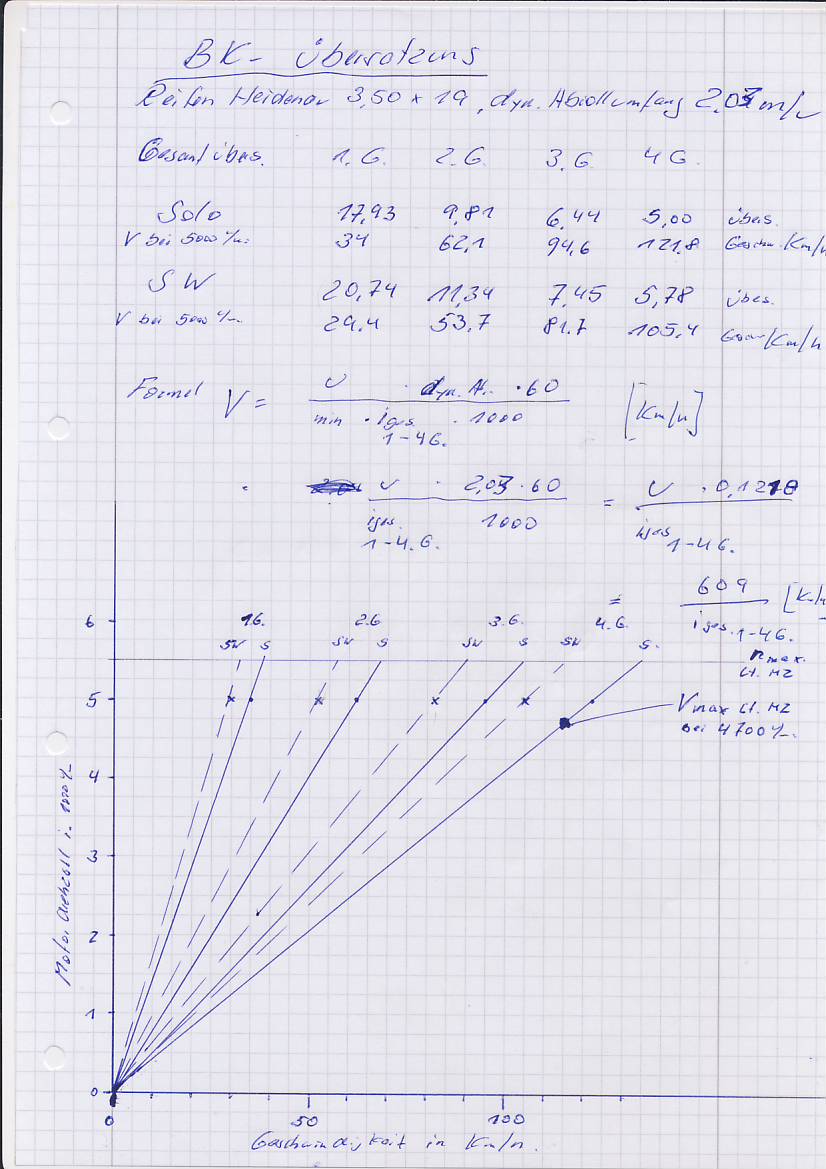 BK- Übersetzung
Reifen Heidenau 3,50 x 19, dyn. Abrollumfang 2,03 m/u
Gesamtübers. 1. G. 2. G. 3. G 4 G.
Solo 17,93 9,81 6,44 5,00 übers.
V bei 5000 1/min 34 62,1 94,6 121,8 Geschw. Km/h
SW 20,74 11,34 7,45 5,78 übes.
V bei 5000 1/min 29,4 53,7 81,7 105,4 Km/h
Formel V = U · dyn. Ar. · 60 [Km/h]
min · iges. · 1000
1-4G.
U · 2,03 · 60 = U · 0,1218
iges. 1000 iges
1-4. G. 1-4 G.
= 609 [Km/h
iges. 1-4G.
6 1G. 2.G 3.G. 4.G.
SW S SW S SW S SW S.
nmax.
lt. HZ
5
Vmax lt. HZ
bei 4700 1/min.
4
3
2
1
0
Motordrehzahl in 1000 1/min
0 50 100
Geschwindigkeit in Km/h.